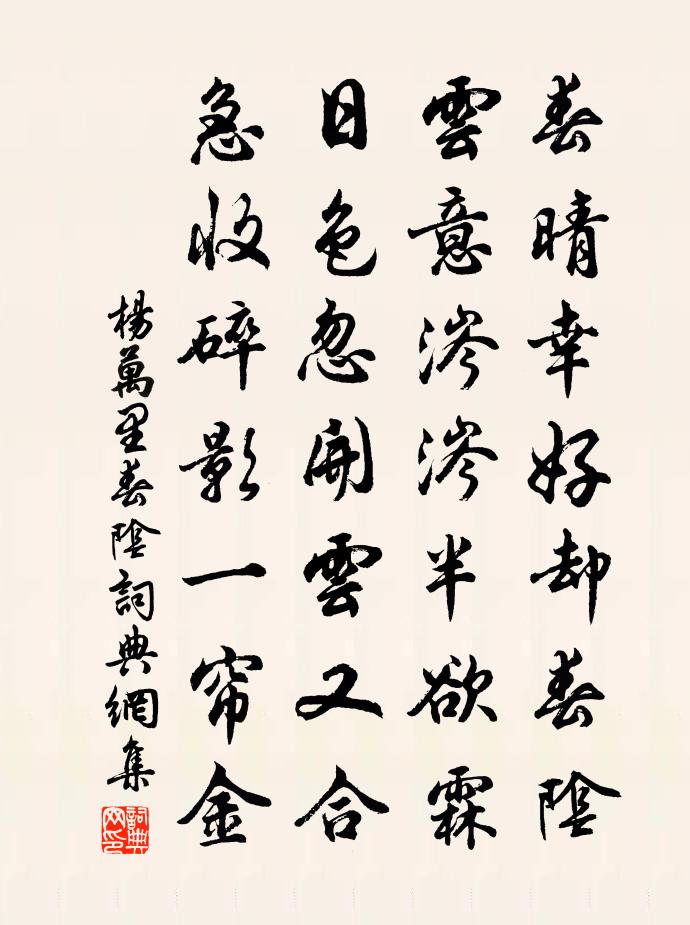 春晴幸好却春陰
雲意涔涔半欲霖
日色忽開雲又合
急收碎影一帘金
楊萬里春陰詞典網集
詞典網印